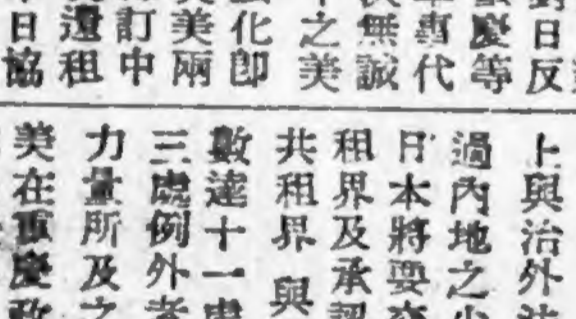 對日反
慶等
專代
無誠
之美
化即
美兩
訂中
還租
日協
上與治外法
過內地之少
日本將要交
租界及承認
共租界與
數達十一處
三處例外者
力量所及之
美在重慶政